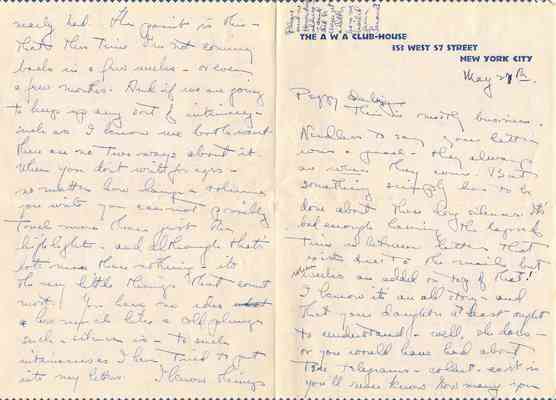 THE A W A CLUB-HOUSE
353 WEST 57 STREET
NEW YORK CITY
May 27th
Poppy Darling
This is mostly business.
Needless to say your letter
was a - they always
are when they come. But
something simply has to be
done about these long silences. It's
bad enough having the lapse
time in between letters that
exists due to the mails but
weeks are added on top of that!
I know it's an old story - and
that your daughter at least ought
to understand - well, she does -
or you would have had about
telegrams - collect - as it is
you'll never know how many you
nearly had. The point is this -
that this time I'm not coming
back in a few weeks - or even
a few months. And if we are going
to keep up any sort of intimacy -
such as I know we both want
there are no two ways about it.
When you don't write for ages -
no matter how long a volume
you write you cannot possibly
touch more than just the
highlights - and although that's
lots more than nothing - it's
the very little things that count
most. You have no idea
a like a cold plunge
such silence is - to such
intimacies as I have tried to put
into my letters. I know things